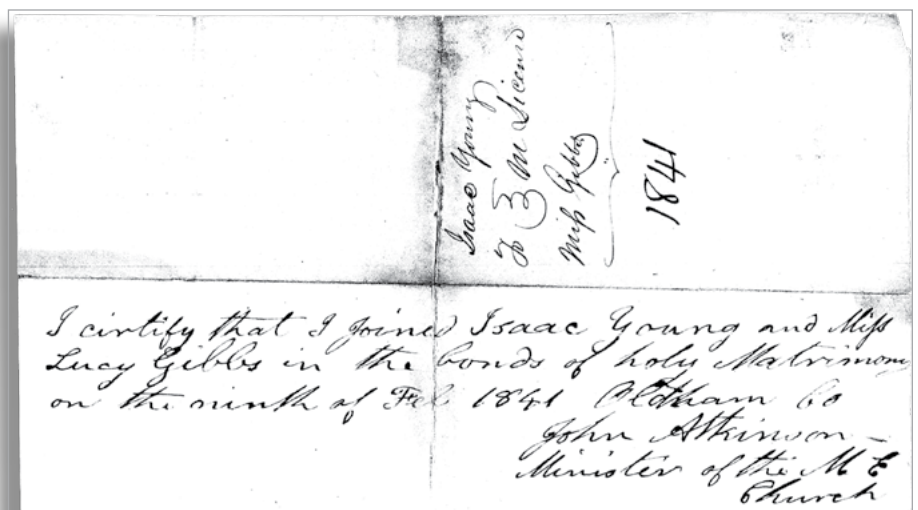 Isaac Young
To } M License
Miss Gibbs
1841
I cirtify that I joined Isaac Young and Miss
Lucy Gibbs in the bonds of holy Matrimony
on the ninth of Feb 1841 Oldham Co
John Atkinson
Minister of the M E
Church